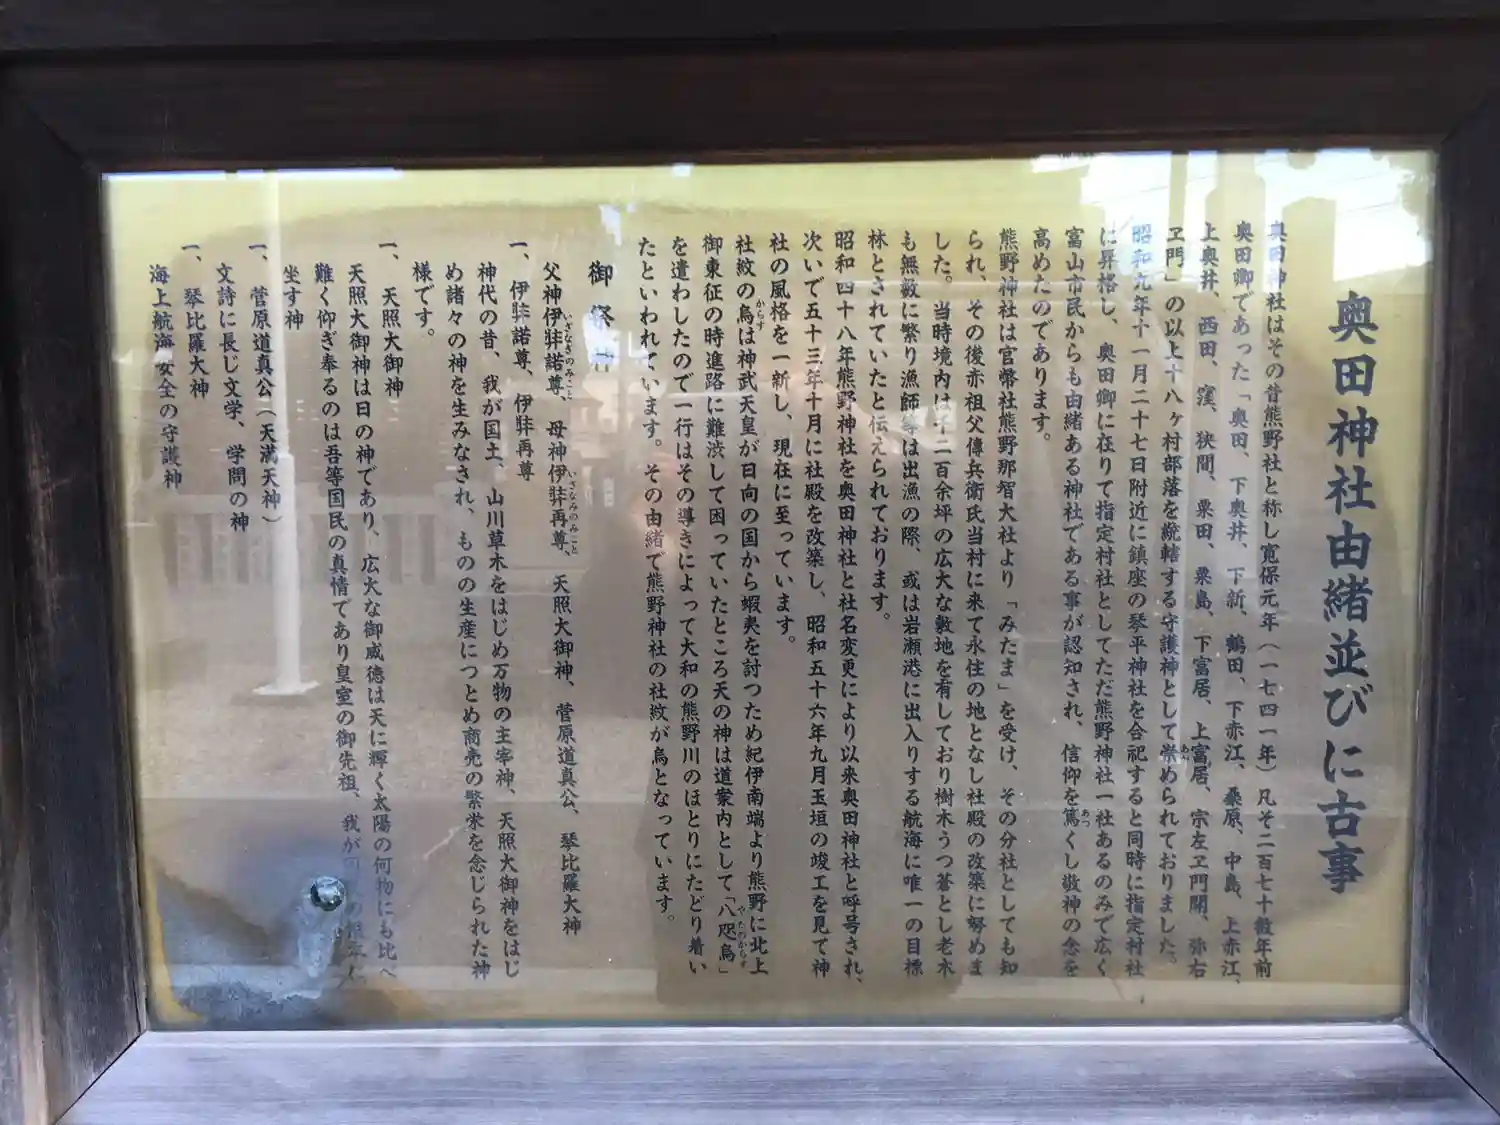 奥田神社由緒並びに古事
奥田神社はその昔熊野社と称し寛保元年(一七四一年)凡そ二百七十数年前
奥田郷であった「奥田、下奥井、下新、鶴田、下赤江、桑原、中島、上赤江、
上奥井、西田、窪、狭間、粟田、粟島、下富居、上富居、宗左ヱ門開、弥右
ヱ門」の以上十八ヶ村部落を統轄する守護神として崇められておりました。
昭和九年十一月二十七日附近に鎮座の琴平神社を合祀すると同時に指定村社
に昇格し、奥田郷に在りて指定村社としてただ熊野神社一社あるのみで広く
富山市民からも由緒ある神社である事が認知され、信仰を篤くし敬神の念を
高めたのであります。
熊野神社は官幣社熊野那智大社より「みたま」を受け、その分社としても知
られ、その後赤祖父傳兵衛氏当村に来て永住の地となし社殿の改築に努めま
した。当時境内は千二百余坪の広大な敷地を有しており樹木うつ蒼とし老木
も無数に繁り漁師等は出漁の際、或は岩瀬港に出入りする航海に唯一の目標
林とされていたと伝えられております。
昭和四十八年熊野神社を奥田神社と社名変更により以来奥田神社と呼号され、
次いで五十三年十月に社殿を改築し、昭和五十六年九月玉垣の竣工を見て神
社の風格を一新し、現在に至っています。
社紋の烏は神武天皇が日向の国から蝦夷を討つため紀伊南端より熊野に北上
御東征の時進路に難渋して困っていたところ天の神は道案内として「八咫烏」
を遣わしたので一行はその導きによって大和の熊野川のほとりにたどり着い
たといわれています。その由緒で熊野神社の社紋が烏となっています。
御祭神
父神伊弉諾尊、母神伊弉再尊、天照大御神、菅原道真公、琴比羅大神
一、伊弉諾尊、伊弉再尊
神代の昔、我が国土、山川草木をはじめ万物の主宰神、天照大御神をはじ
め諸々の神を生みなされ、ものの生産につとめ商売の繁栄を念じられた神
様です。
一、天照大御神
天照大御神は日の神であり、広大な御威徳は天に輝く太陽の何物にも比べ
難く仰ぎ奉るのは吾等国民の真情であり皇室の御先祖、我が
坐す神
一、菅原道真公(天満天神)
文詩に長じ文学、学問の神
一、琴比羅大神
海上航海安全の守護神